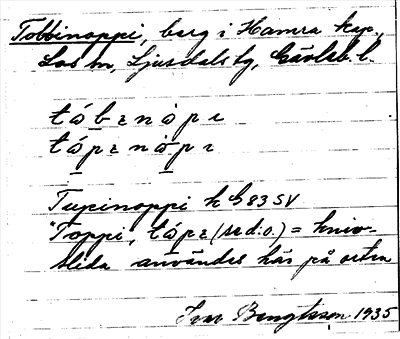 Tobbinoppi, berg i Hamra kap.,
Los sn, Ljusdals tg, Gävleb. l.
tȧbɛnȧpɩ
tȧpɛnȧpɩ
Tupinoppi h G83SV
"Toppi, tȧpɛ (se d:o.) = kniv-
slida användes här på orten
Ivar Bengtsson 1935